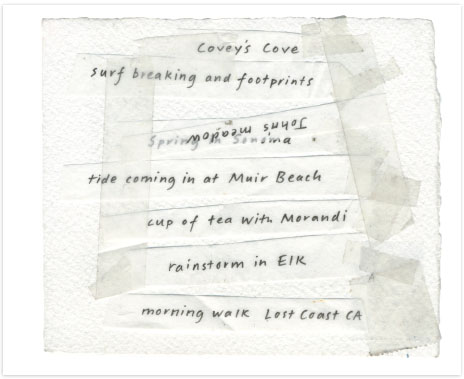 Covey's Cove
surf breaking and footprints
John's meadow
Spring in Sonoma
tide coming in at Muir Beach
cup of tea with Morandi
rainstorm in Elk
morning walk Lost Coast CA